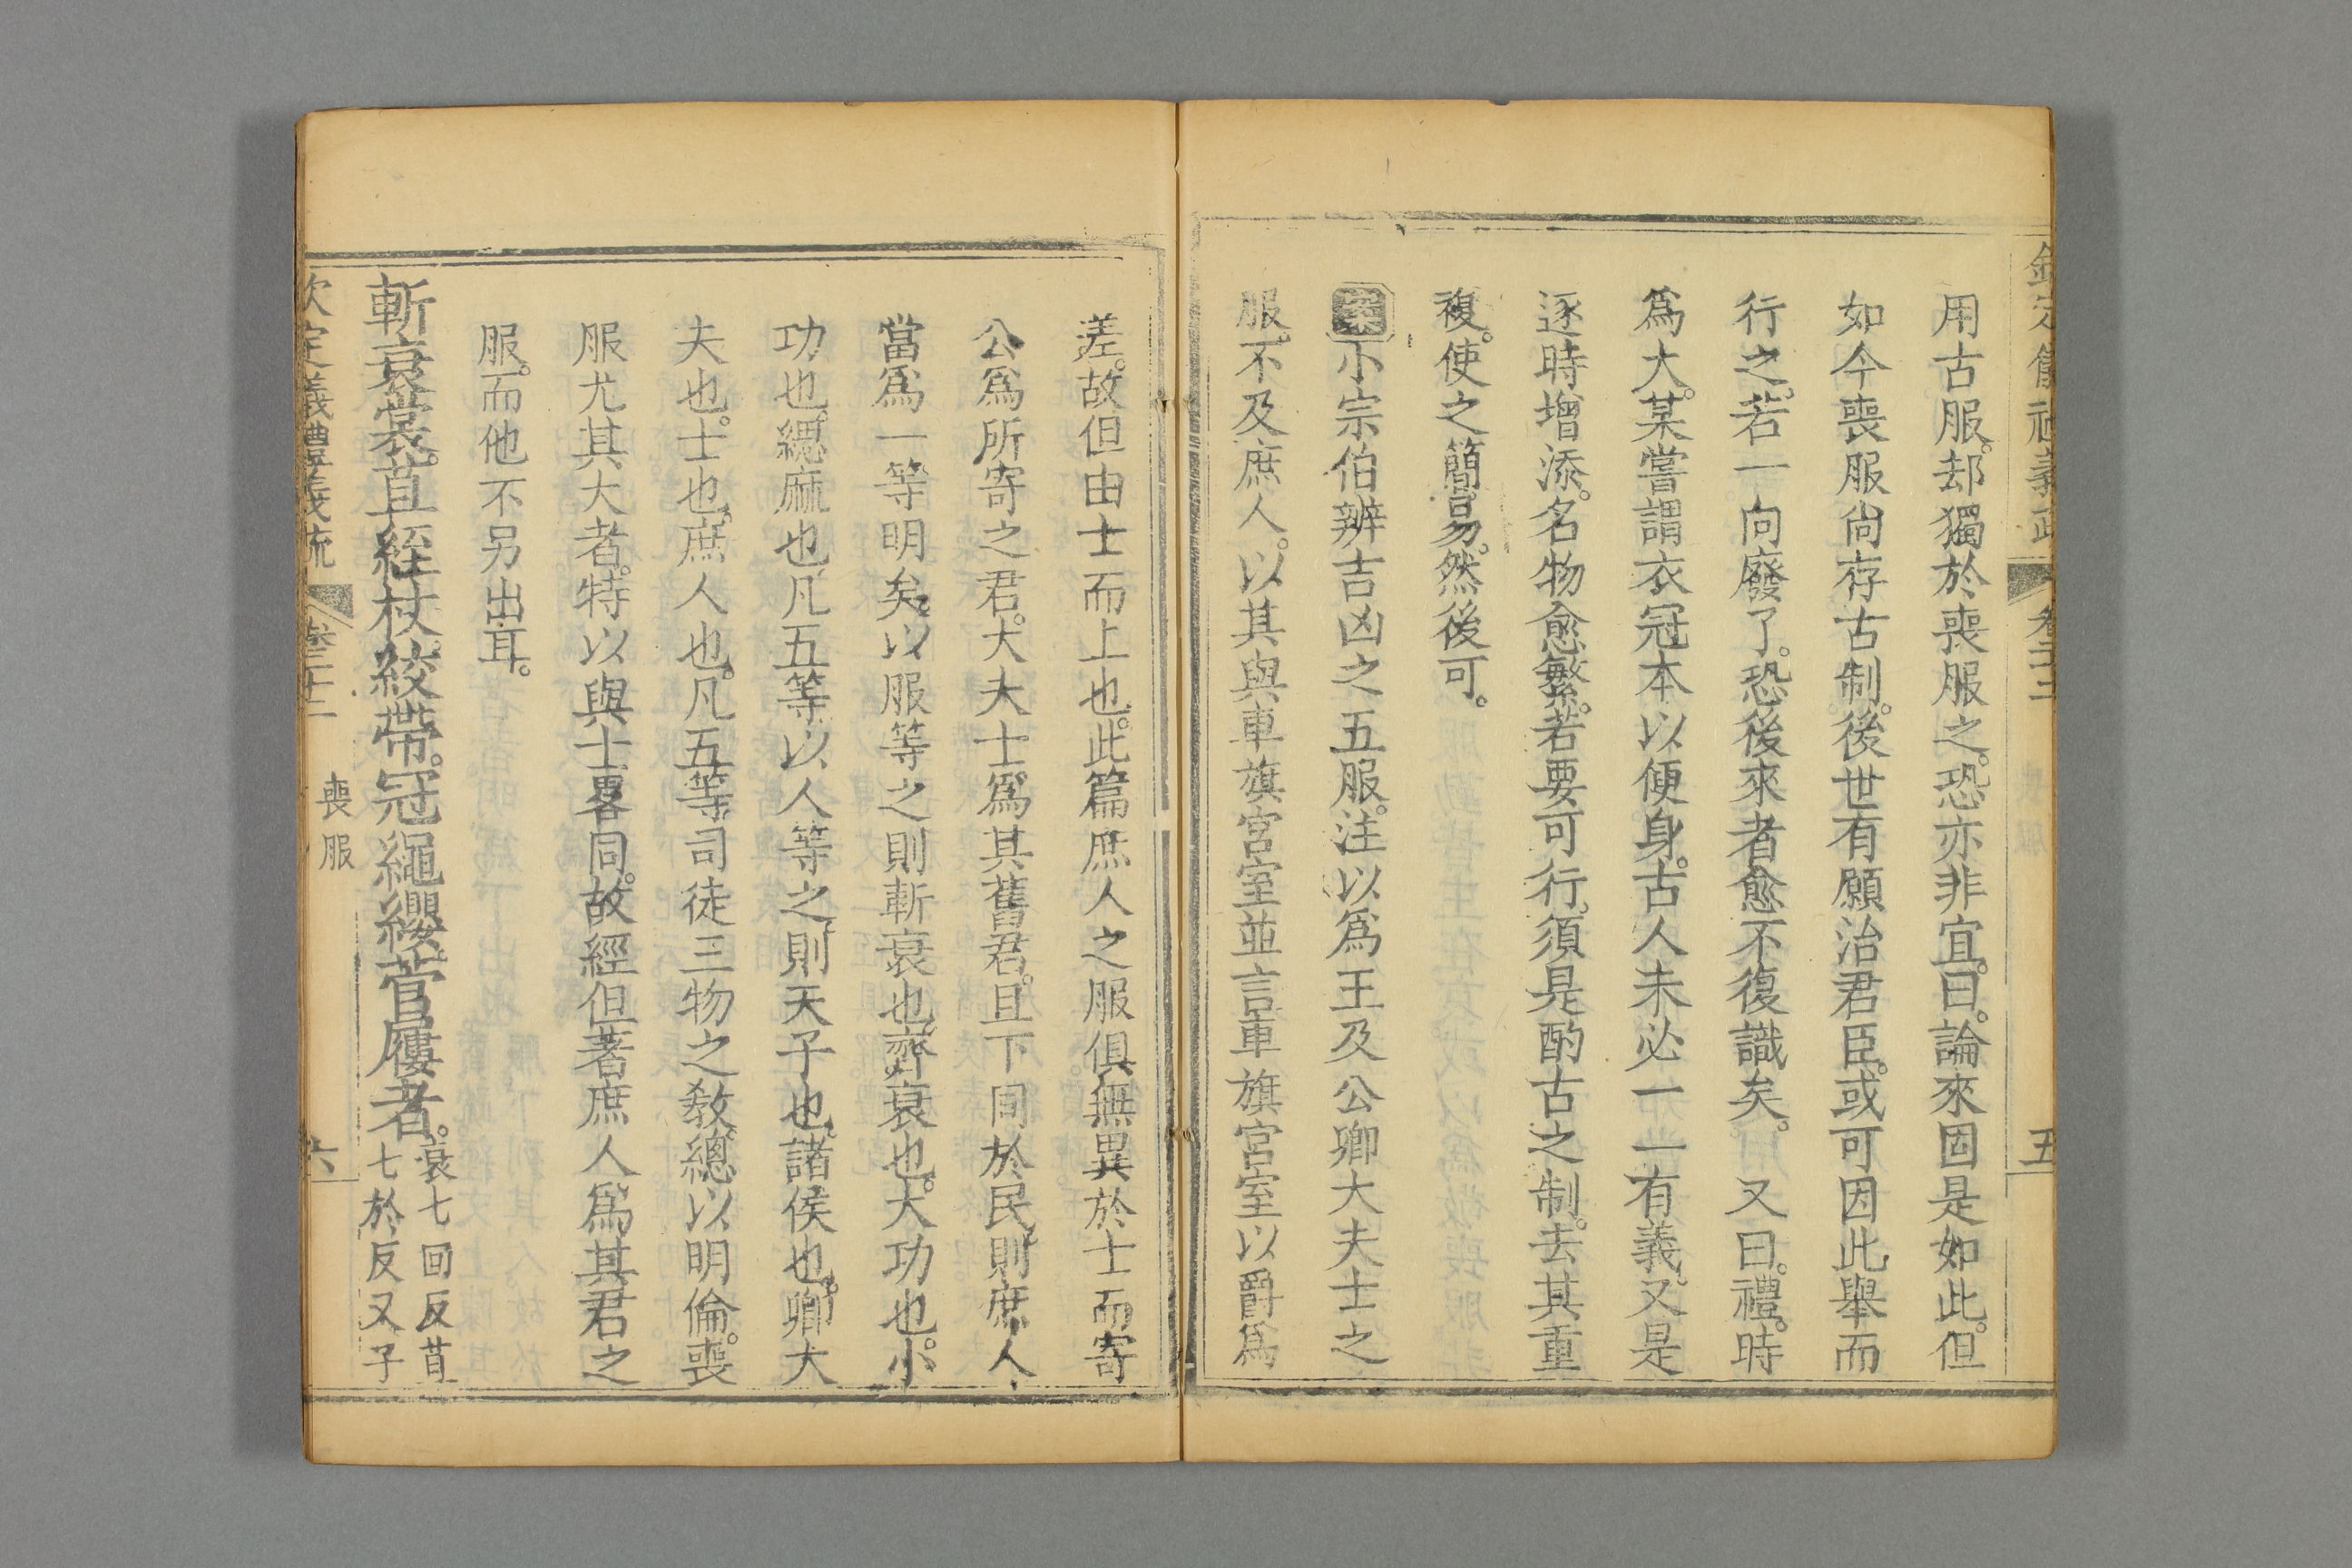 欽定儀禮義疏 卷二十二 五
用古服。却獨於喪服之。恐亦非宜。曰。論來固是如此。但
如今喪服尙存古制。後世有願治君臣。或可因此舉而
行之。若一向廢了。恐後來者愈不復識矣。又曰。禮。時
爲大。某嘗謂衣冠本以便身。古人未必一一有義。又是
逐時增添。名物愈繁。若要可行。須是酌古之制。去其重
複。使之簡易。然後可。
案小宗伯辨吉凶之五服。注以爲王及公卿大夫士之
服。不及庶人。以其與車旗宮室並言車旗宮室以爵爲
差。故但由士而上也。此篇庶人之服俱無異於士而寄
公爲所寄之君。大夫士爲其舊君。且下同於民。則庶人
當爲一等明矣。以服等之則斬衰也。齊衰也。大功也。小
功也。緦麻也。凡五等。以人等之。則天子也。諸侯也。卿大
夫也。士也。庶人也。凡五等。司徒三物之敎。總以明倫。喪
服尤其大者。特以與士畧同。故經但著庶人爲其君之
服。而他不另出耳。
斬衰裳。苴絰杖絞帶。冠繩纓。菅屨者。衰七回反苴
七於反又子
欽定儀禮義疏 卷二十二 喪服 六